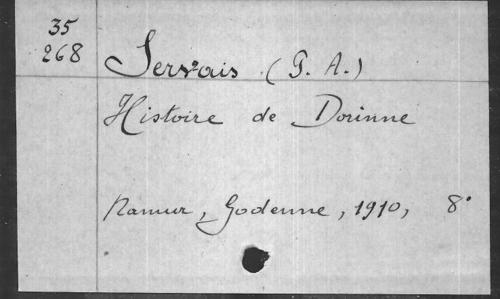 35
268
Servais (G. A.)
Histoire de Dorinne
Namur, Godenne, 1910, 8°